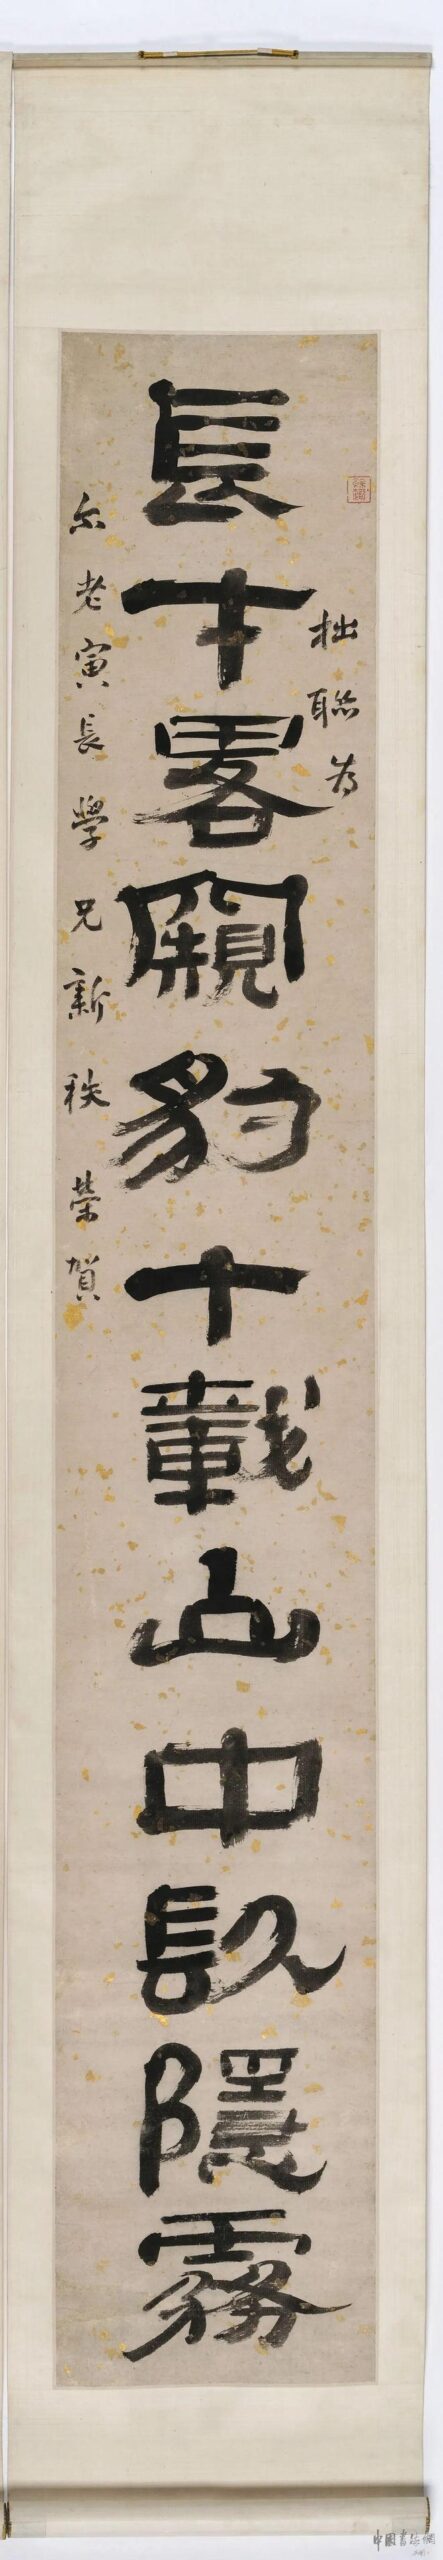 拙聯為
長才畧闚豹十載山中镹隱霧
尔老寅長學兄新秩榮賀
中国書法網